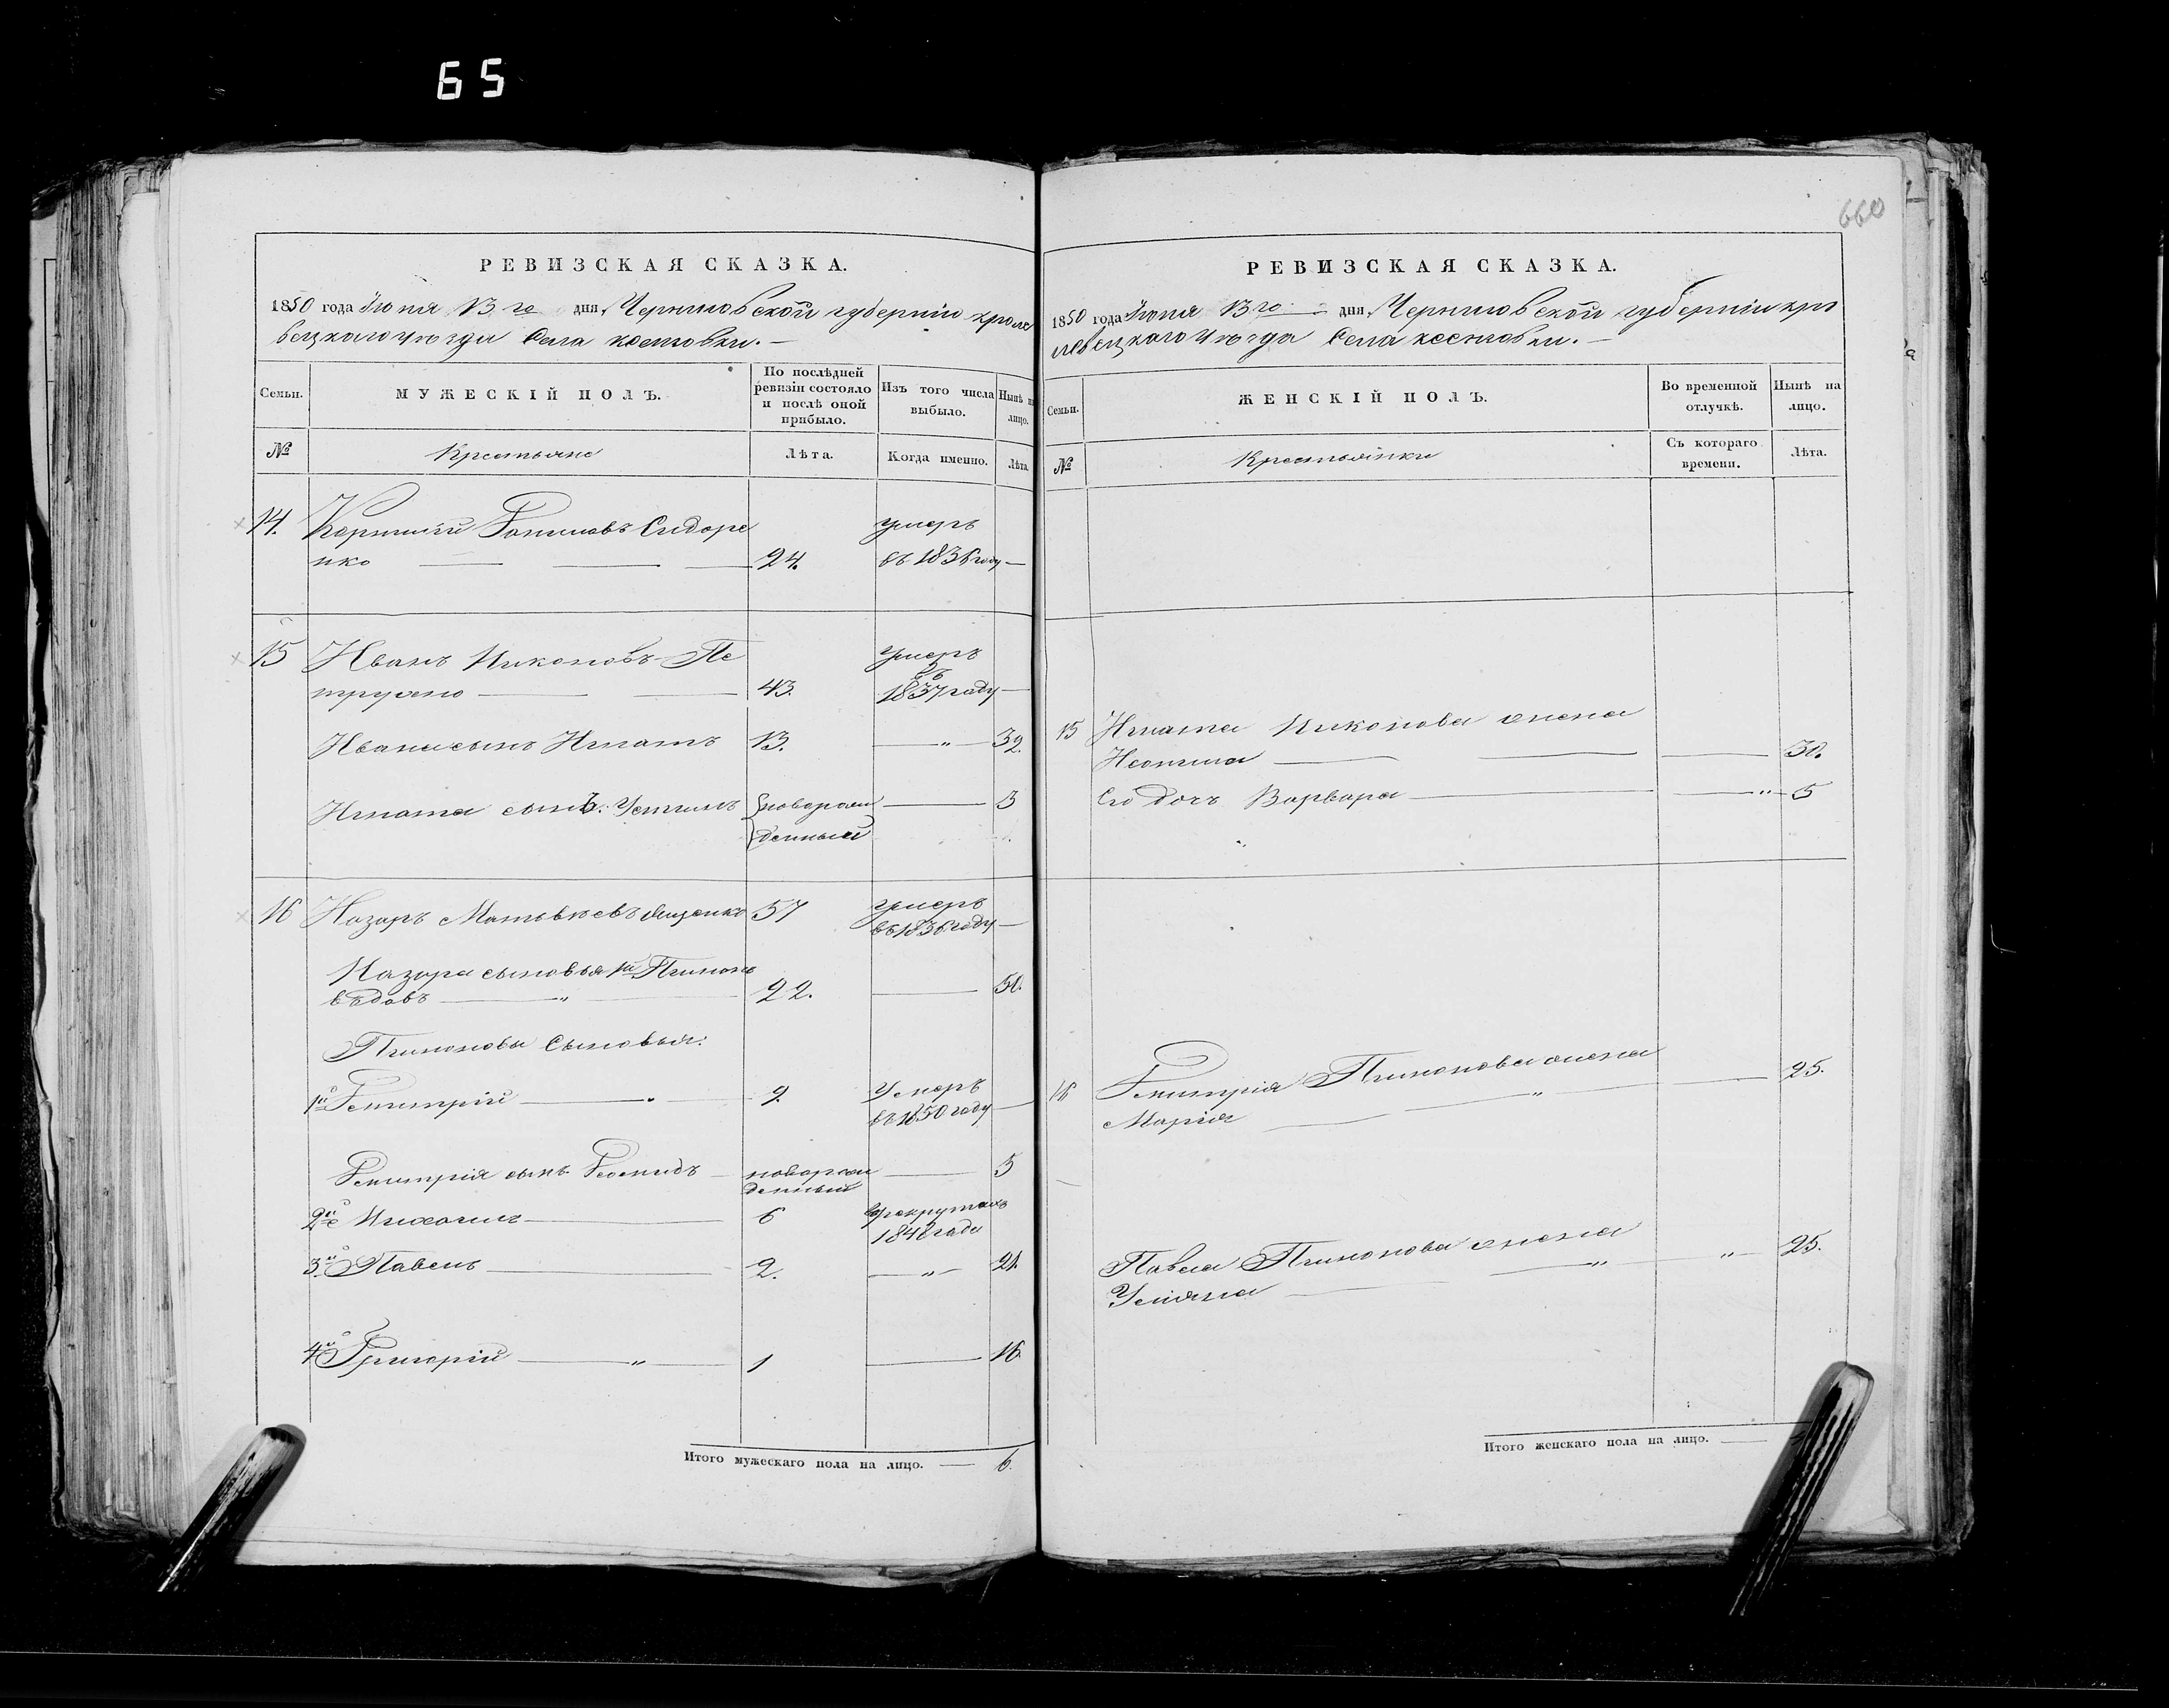 65
660
РЕВИЗСКАЯ СКАЗКА.
1850 года Іюня 13 го дня, Черниговской губерніи кроле
вецкаго уѣзда Села
Семьи.
МУЖЕСКІЙ ПОЛЪ.
По послѣдней ревизіи состояло и послѣ оной прибыло.
Изъ того числа выбыло.
Нынѣ на лицо.
№
Крестьяне
Лѣта.
Когда именно.
Лѣта.
14. Корнилій Сидоре
нко 24.
умеръ
въ 1836 году
15 Иванъ Никоновъ Пе
43.
умеръ
въ
1837 году
Ивана сынъ Игнатъ 13. " 32.
Игната сынъ: Устинъ новорож
денный
3
16 Назаръ Матвѣевъ 57
умеръ
въ 1836 году
Назара сыновья 1й
вдовъ " 22. 50.
сыновья:
1й Дмитрій 9.
Умеръ
въ 1850 году
Дмитрія сынъ новорож
денный
5
6
1848 года
3й Павелъ 2. " 21.
4й Григорій " 1 16.
Итого мужескаго пола на лицо. 6.
РЕВИЗСКАЯ СКАЗКА.
1850 года Іюня 13 го дня, Черниговской губерніи кро
левецкаго уѣзда Села
Семьи.
ЖЕНСКІЙ ПОЛЪ.
Во временной отлучкѣ.
Нынѣ на лицо.
№
Крестьянки
Съ котораго времени.
Лѣта.
15 Игната Никонова жена
30.
Его дочь Варвара " 5
16 Дмитрія жена 25.
Марія "
Павла жена " 25.
Уліяна "
Итого женскаго пола на лицо.